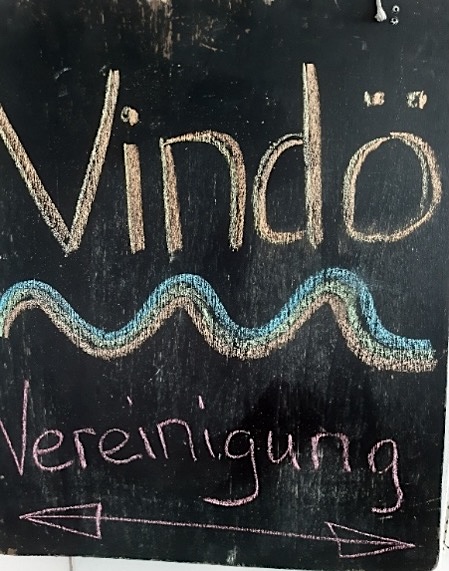 Vindö
Vereinigung